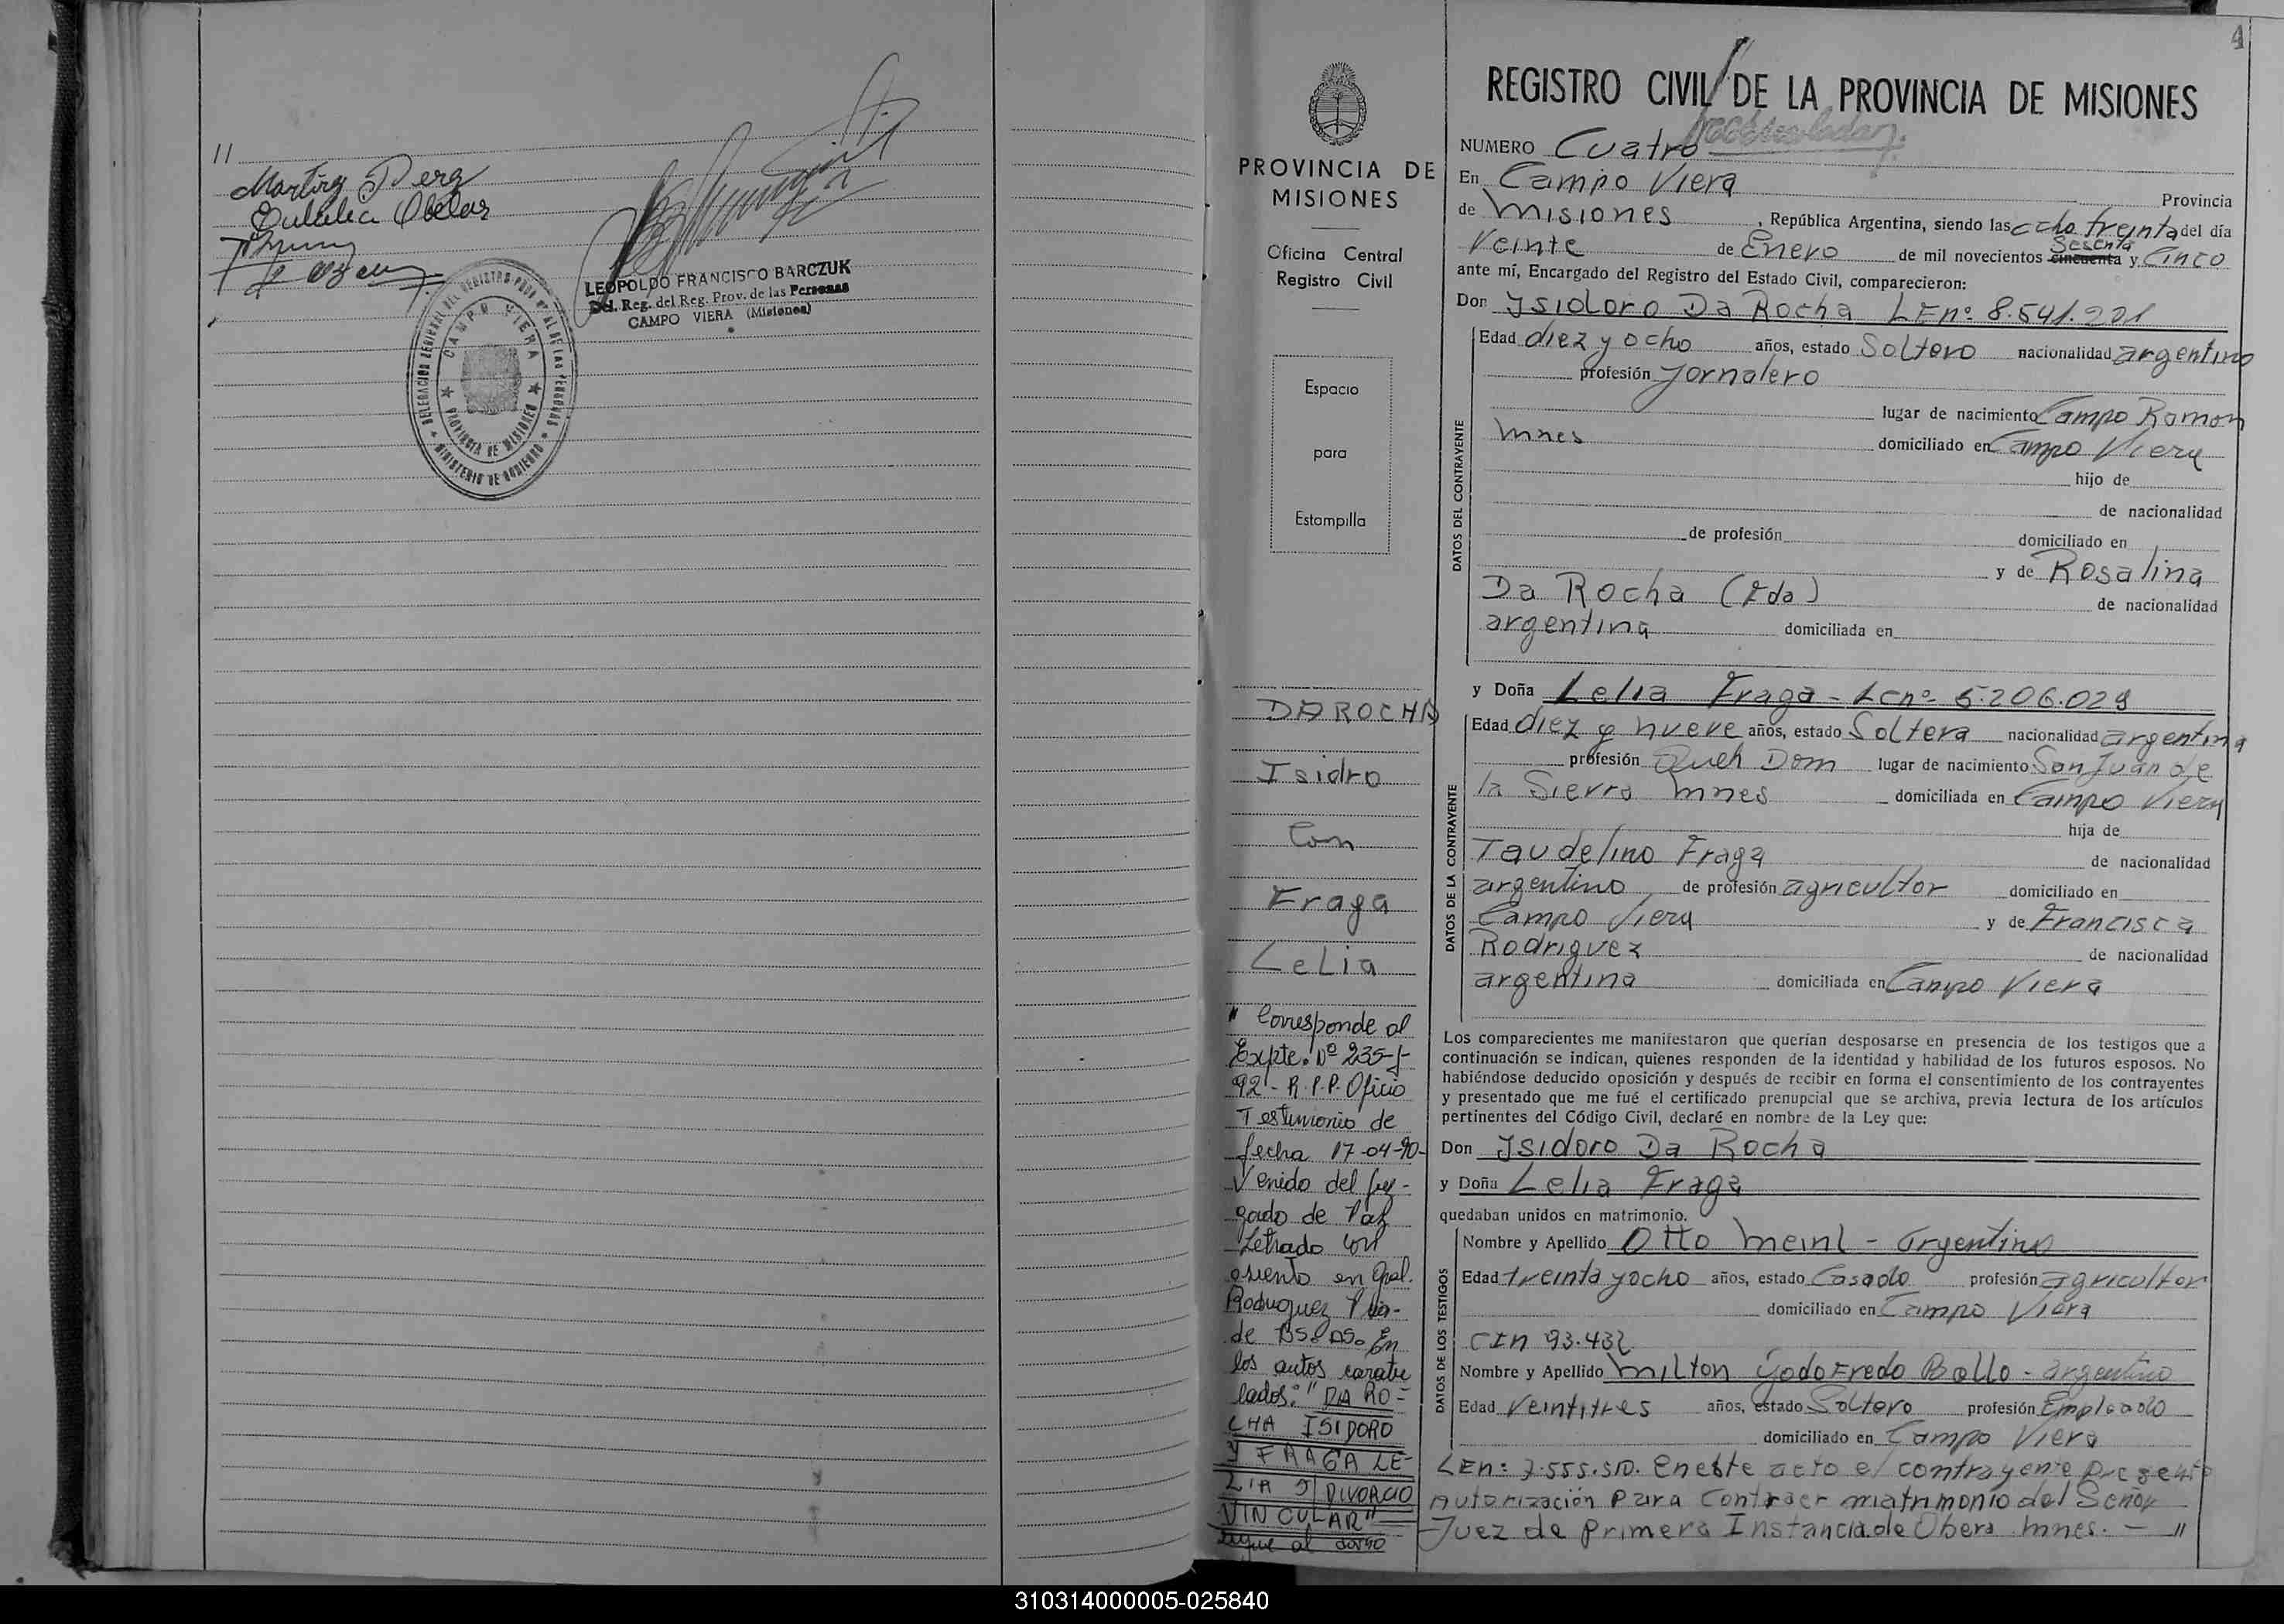 11
Martirez Perez
Eulalia Obelar
LEOPOLDO FRANCISCO BARCZUK
Del. Reg. del Reg. Prov. de las Personas
CAMPO VIERA (Misiones)
CAMPO VIERA
PROVINCIA DE MISIONES
MINISTERIO DE GOBIERNO
4
PROVINCIA DE
MISIONES
Oficina Central
Registro Civil
Espacio
para
Estampilla
DA ROCHA
Isidro
Con
Fraga
Lelia
" Corresponde al
Expte. Nº 235-J-
92 - R.P.P. Oficio
Testimonio de
fecha 17-04-90-
Venido del Juz-
gado de Paz
Letrado con
asiento en Gral.
Rodriguez Pvia-
de BS. AS. En
los autos caratu
lados: " DA RO=
CHA ISIDORO
Y FRAGA LE-
LIA S/ DIVORCIO
VINCULAR"
sigue al dorso
REGISTRO CIVIL DE LA PROVINCIA DE MISIONES
NUMERO Cuatro
En Campo Viera Provincia
de Misiones , República Argentina, siendo las ocho treinta del día
Veinte de Enero de mil novecientos cincuenta sesenta y Cinco
ante mí, Encargado del Registro del Estado Civil, comparecieron:
Don Isidoro Da Rocha LEnº 8.541.221
DATOS DEL CONTRAYENTE
Edad diez y ocho años, estado Soltero nacionalidad argentino
profesión Jornalero
lugar de nacimiento Campo Ramon
Mnes domiciliado en Campo Viera
hijo de
de nacionalidad
de profesión domiciliado en
y de Rosalina
Da Rocha (Fda) de nacionalidad
argentina domiciliada en
y Doña Lelia Fraga - Lcnº 5.206.029
DATOS DE LA CONTRAYENTE
Edad diez y nueve años, estado Soltera nacionalidad argentina
profesión Queh Dom lugar de nacimiento San Juan de
la Sierra Mnes domiciliada en Campo Viera
hija de
Taudelino Fraga de nacionalidad
argentino de profesión agricultor domiciliado en
Campo Viera y de Francisca
Rodriguez de nacionalidad
argentina domiciliada en Campo Viera
Los comparecientes me manifestaron que querían desposarse en presencia de los testigos que a
continuación se indican, quienes responden de la identidad y habilidad de los futuros esposos. No
habiéndose deducido oposición y después de recibir en forma el consentimiento de los contrayentes
y presentado que me fué el certificado prenupcial que se archiva, previa lectura de los artículos
pertinentes del Código Civil, declaré en nombre de la Ley que:
Don Isidoro Da Rocha
y Doña Lelia Fraga
quedaban unidos en matrimonio.
DATOS DE LOS TESTIGOS
Nombre y Apellido Otto Meinl - argentino
Edad treinta y ocho años, estado Casado profesión agricultor
domiciliado en Campo Viera
CIn 93.432
Nombre y Apellido Milton Godofredo Ballo - argentino
Edad Veintitres años, estado Soltero profesión Empleado
domiciliado en Campo Viera
LEn: 7.555.510. En este acto el contrayente presento
Autorización para Contraer matrimonio del Señor
Juez de Primera Instancia de Obera Mnes. - "
310314000005-025840